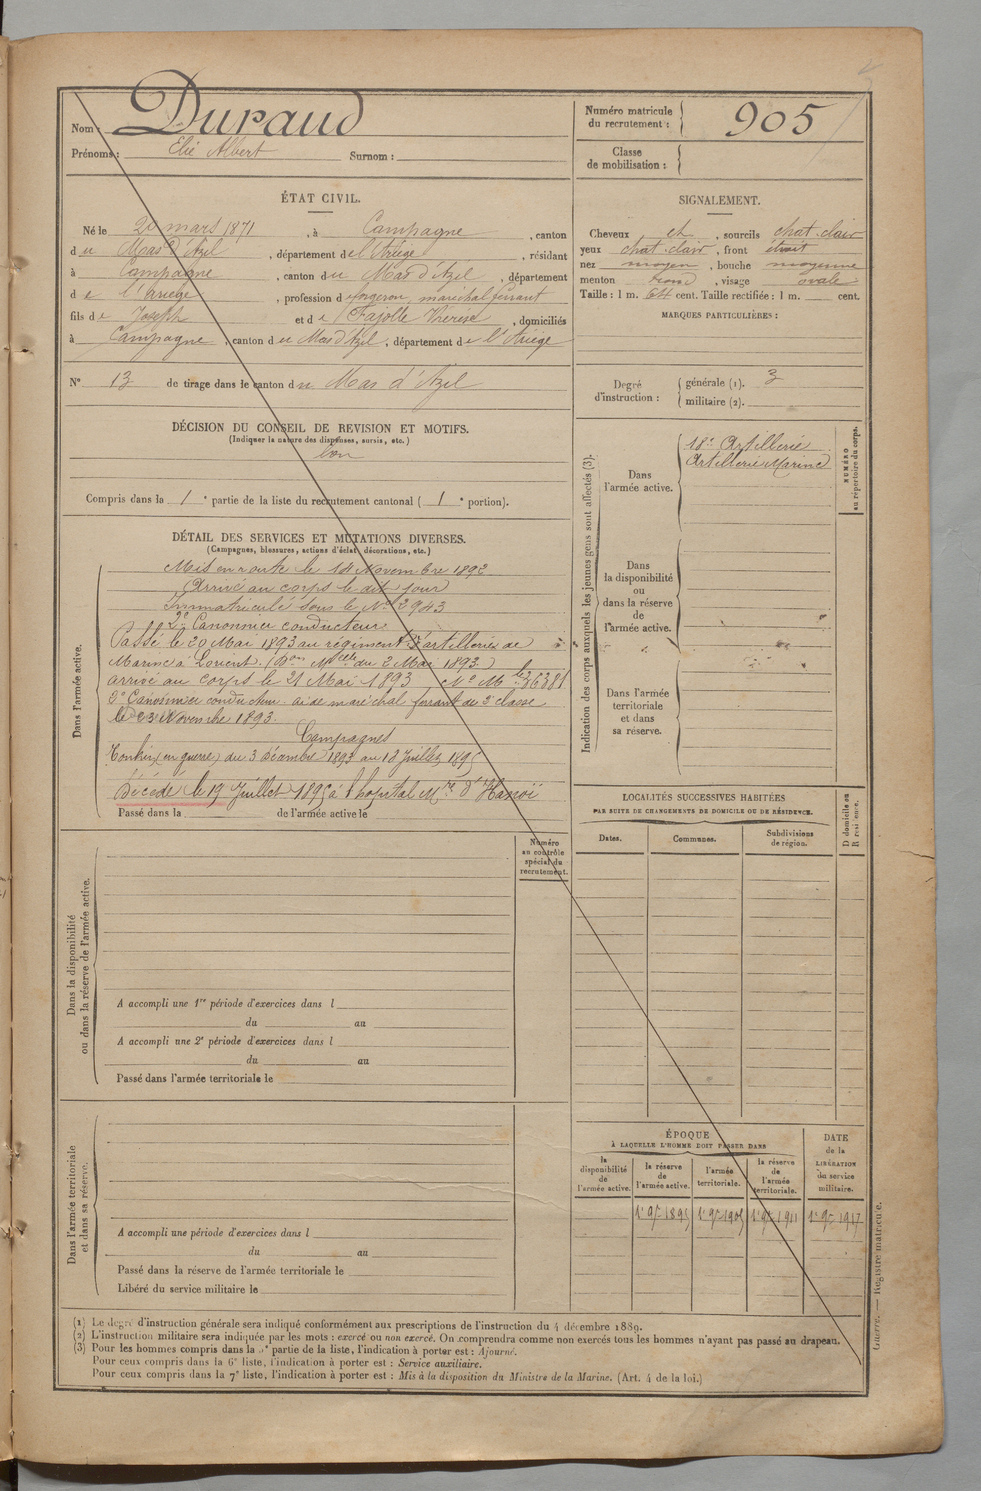 Nom : Durand
Prénoms : Elie Albert Surnom :
Numéro matricule
du recrutement : 905
Classe
de mobilisation :
ÉTAT CIVIL.
Né le 20 mars 1871, à Campagne, canton
du Mas d'Azil, département de l'Ariège, résidant
à Campagne, canton du Mas d'Azil, département
de l'ariège, profession de forgeron, maréchal ferrant
fils de Joseph et de Fajolle Thérèse, domiciliés
à Campagne, canton du Mas d'Azil, département de l'Ariège
N° 13 de tirage dans le canton du Mas d'Azil
SIGNALEMENT.
Cheveux et, sourcils chat. clair
yeux chat. clair, front étroit
nez moyen, bouche moyenne
menton rond, visage ovale
Taille : 1 m. 64 cent. Taille rectifiée : 1 m. cent.
MARQUES PARTICULIÈRES :
Degré
d'instruction :
générale (1). 3
militaire (2).
DÉCISION DU CONSEIL DE REVISION ET MOTIFS.
(Indiquer la nature des dispenses, sursis, etc.)
bon
Compris dans la 1e partie de la liste du recrutement cantonal (1e portion).
DÉTAIL DES SERVICES ET MUTATIONS DIVERSES.
(Campagnes, blessures, actions d'éclat, décorations, etc.)
Dans l'armée active.
Mis en route le 14 Novembre 1892
Arrivé au corps le dit jour
Immatriculé sous le No 2943
2e Canonnier conducteur
Passé le 20 Mai 1893 au régiment d'artillerie de
Marine à Lorient. (Don Mlle du 2 Mai 1893)
arrivé au corps le 21 Mai 1893 No Mle 36381
2e Canonnier conducteur aide maréchal ferrant de 3e classe
le 23 Novembre 1893.
Campagnes
Tonkin (en guerre) du 3 Décembre 1893 au 18 Juillet 1895
Décédé le 19 Juillet 1895 à l'hopital Mre d'Hanoï
Passé dans la de l'armée active le
Indication des corps auxquels les jeunes gens sont affectés (3).
Dans
l'armée active.
18e Artillerie
Artillerie Marine
NUMÉRO
au répertoire du corps.
Dans
la disponibilité
ou
dans la réserve
de
l'armée active.
Dans l'armée
territoriale
et dans
sa réserve.
LOCALITÉS SUCCESSIVES HABITÉES
PAR SUITE DE CHANGEMENTS DE DOMICILE OU DE RÉSIDENCE.
Dates. Communes. Subdivisions
de région.
D domicile ou
R résidence.
Numéro
au contrôle
spécial du
recrutement.
Dans la disponibilité
ou dans la réserve de l'armée active.
A accompli une 1re période d'exercices dans l
du au
A accompli une 2e période d'exercices dans l
du au
Passé dans l'armée territoriale le
Dans l'armée territoriale
et dans sa réserve.
A accompli une période d'exercices dans l
du au
Passé dans la réserve de l'armée territoriale le
Libéré du service militaire le
ÉPOQUE
À LAQUELLE L'HOMME DOIT PASSER DANS
la
disponibilité
de
l'armée active.
la réserve
de
l'armée active.
l'armée
territoriale.
la réserve
de
l'armée
territoriale.
DATE
de la
LIBÉRATION
du service
militaire.
1er 9re 1895 1er 9re 1905 1er 9re 1911 1er 9re 1917
(1) Le degré d'instruction générale sera indiqué conformément aux prescriptions de l'instruction du 4 décembre 1889.
(2) L'instruction militaire sera indiquée par les mots : exercé ou non exercé. On comprendra comme non exercés tous les hommes n'ayant pas passé au drapeau.
(3) Pour les hommes compris dans la 5e partie de la liste, l'indication à porter est : Ajourné.
Pour ceux compris dans la 6e liste, l'indication à porter est : Service auxiliaire.
Pour ceux compris dans la 7e liste, l'indication à porter est : Mis à la disposition du Ministre de la Marine. (Art. 4 de la loi.)
Guerre. — Registre matricule.